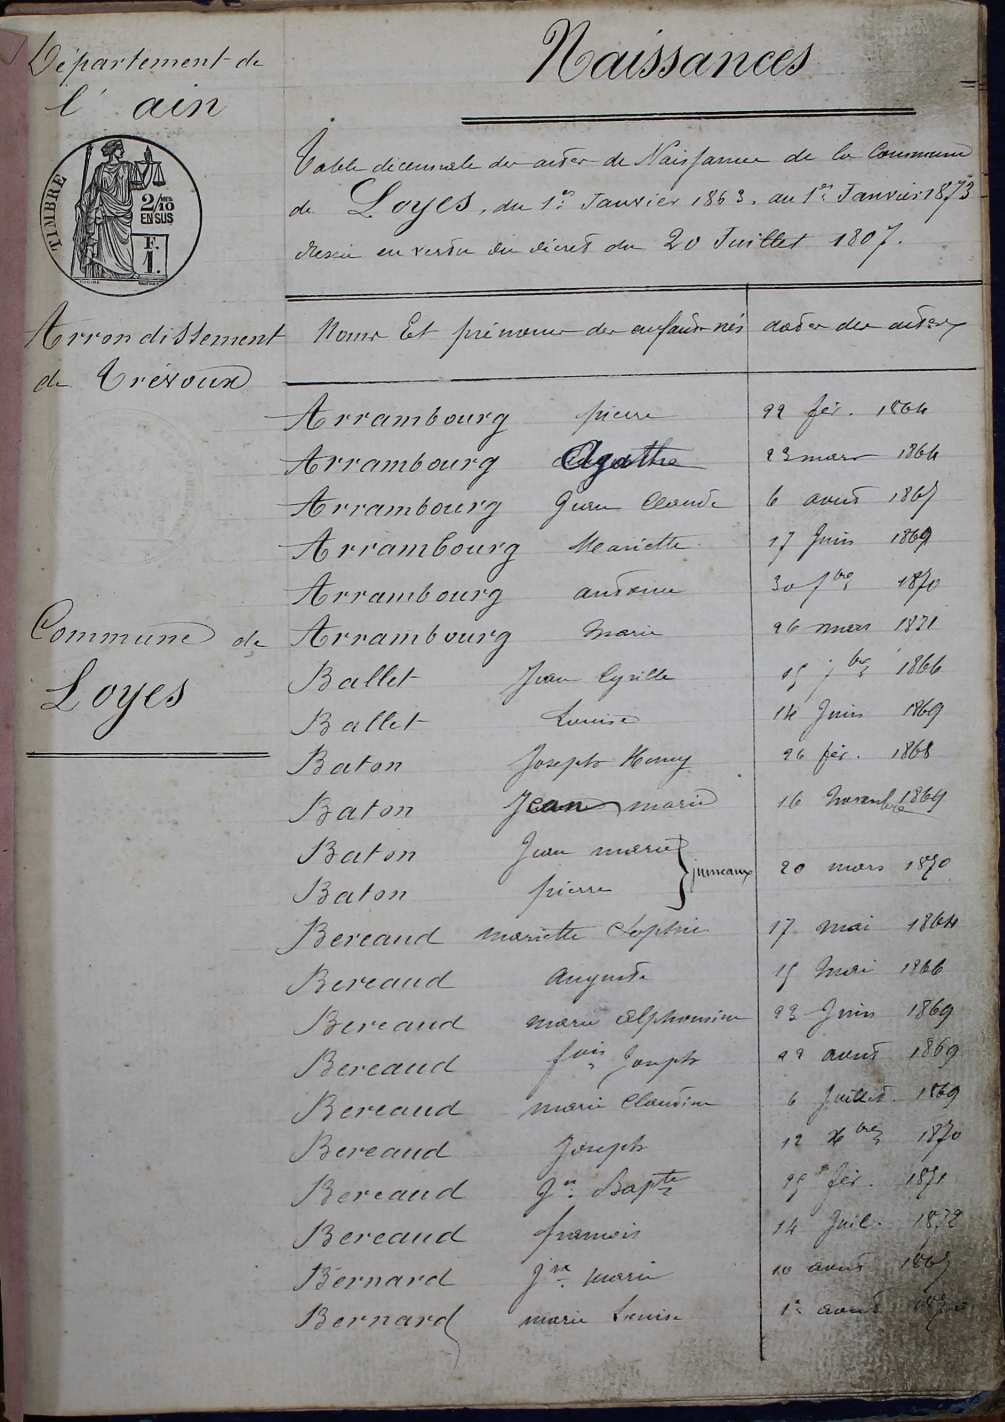 Département de
l'ain
TIMBRE
2/10
EN SUS
F.
1.
Arrondissement
de Trévoux
Commune de
Loyes
Naissances
Table décennale des actes de Naissance de la Commune
de Loyes, du 1er Janvier 1863. au 1er Janvier 1873
en vertu du décret du 20 Juillet 1807.
Noms Et prénoms des enfants nés dates des actes
Arrambourg pierre 22 fév. 1864
Arrambourg Agathe 23 mars 1864
Arrambourg Jean Claude 6 aout 1867
Arrambourg Mariette 17 Juin 1869
Arrambourg antoine 30 7bre 1870
Arrambourg Marie 26 mars 1871
Ballet Jean Cyrille 15 7bre 1866
Ballet Louise 14 Juin 1869
Baton Joseph Henry 26 fév. 1868
Baton Jean marie 16 Novembre 1869
Baton Jean marie
jumeaux 20 mars 1870
Baton pierre
Bereaud mariette Sophie 17 mai 1864
Bereaud Auguste 15 Mai 1866
Bereaud marie alphonsine 23 Juin 1869
Bereaud fois Joseph 22 aout 1869
Bereaud marie Claudine 6 Juillet 1869
Bereaud Joseph 12 Xbre 1870
Bereaud Jn Bapte 25 fév. 1871
Bereaud francois 14 Juil. 1872
Bernard Jne Marie 10 aout 1865
Bernard marie Louise 1er aout